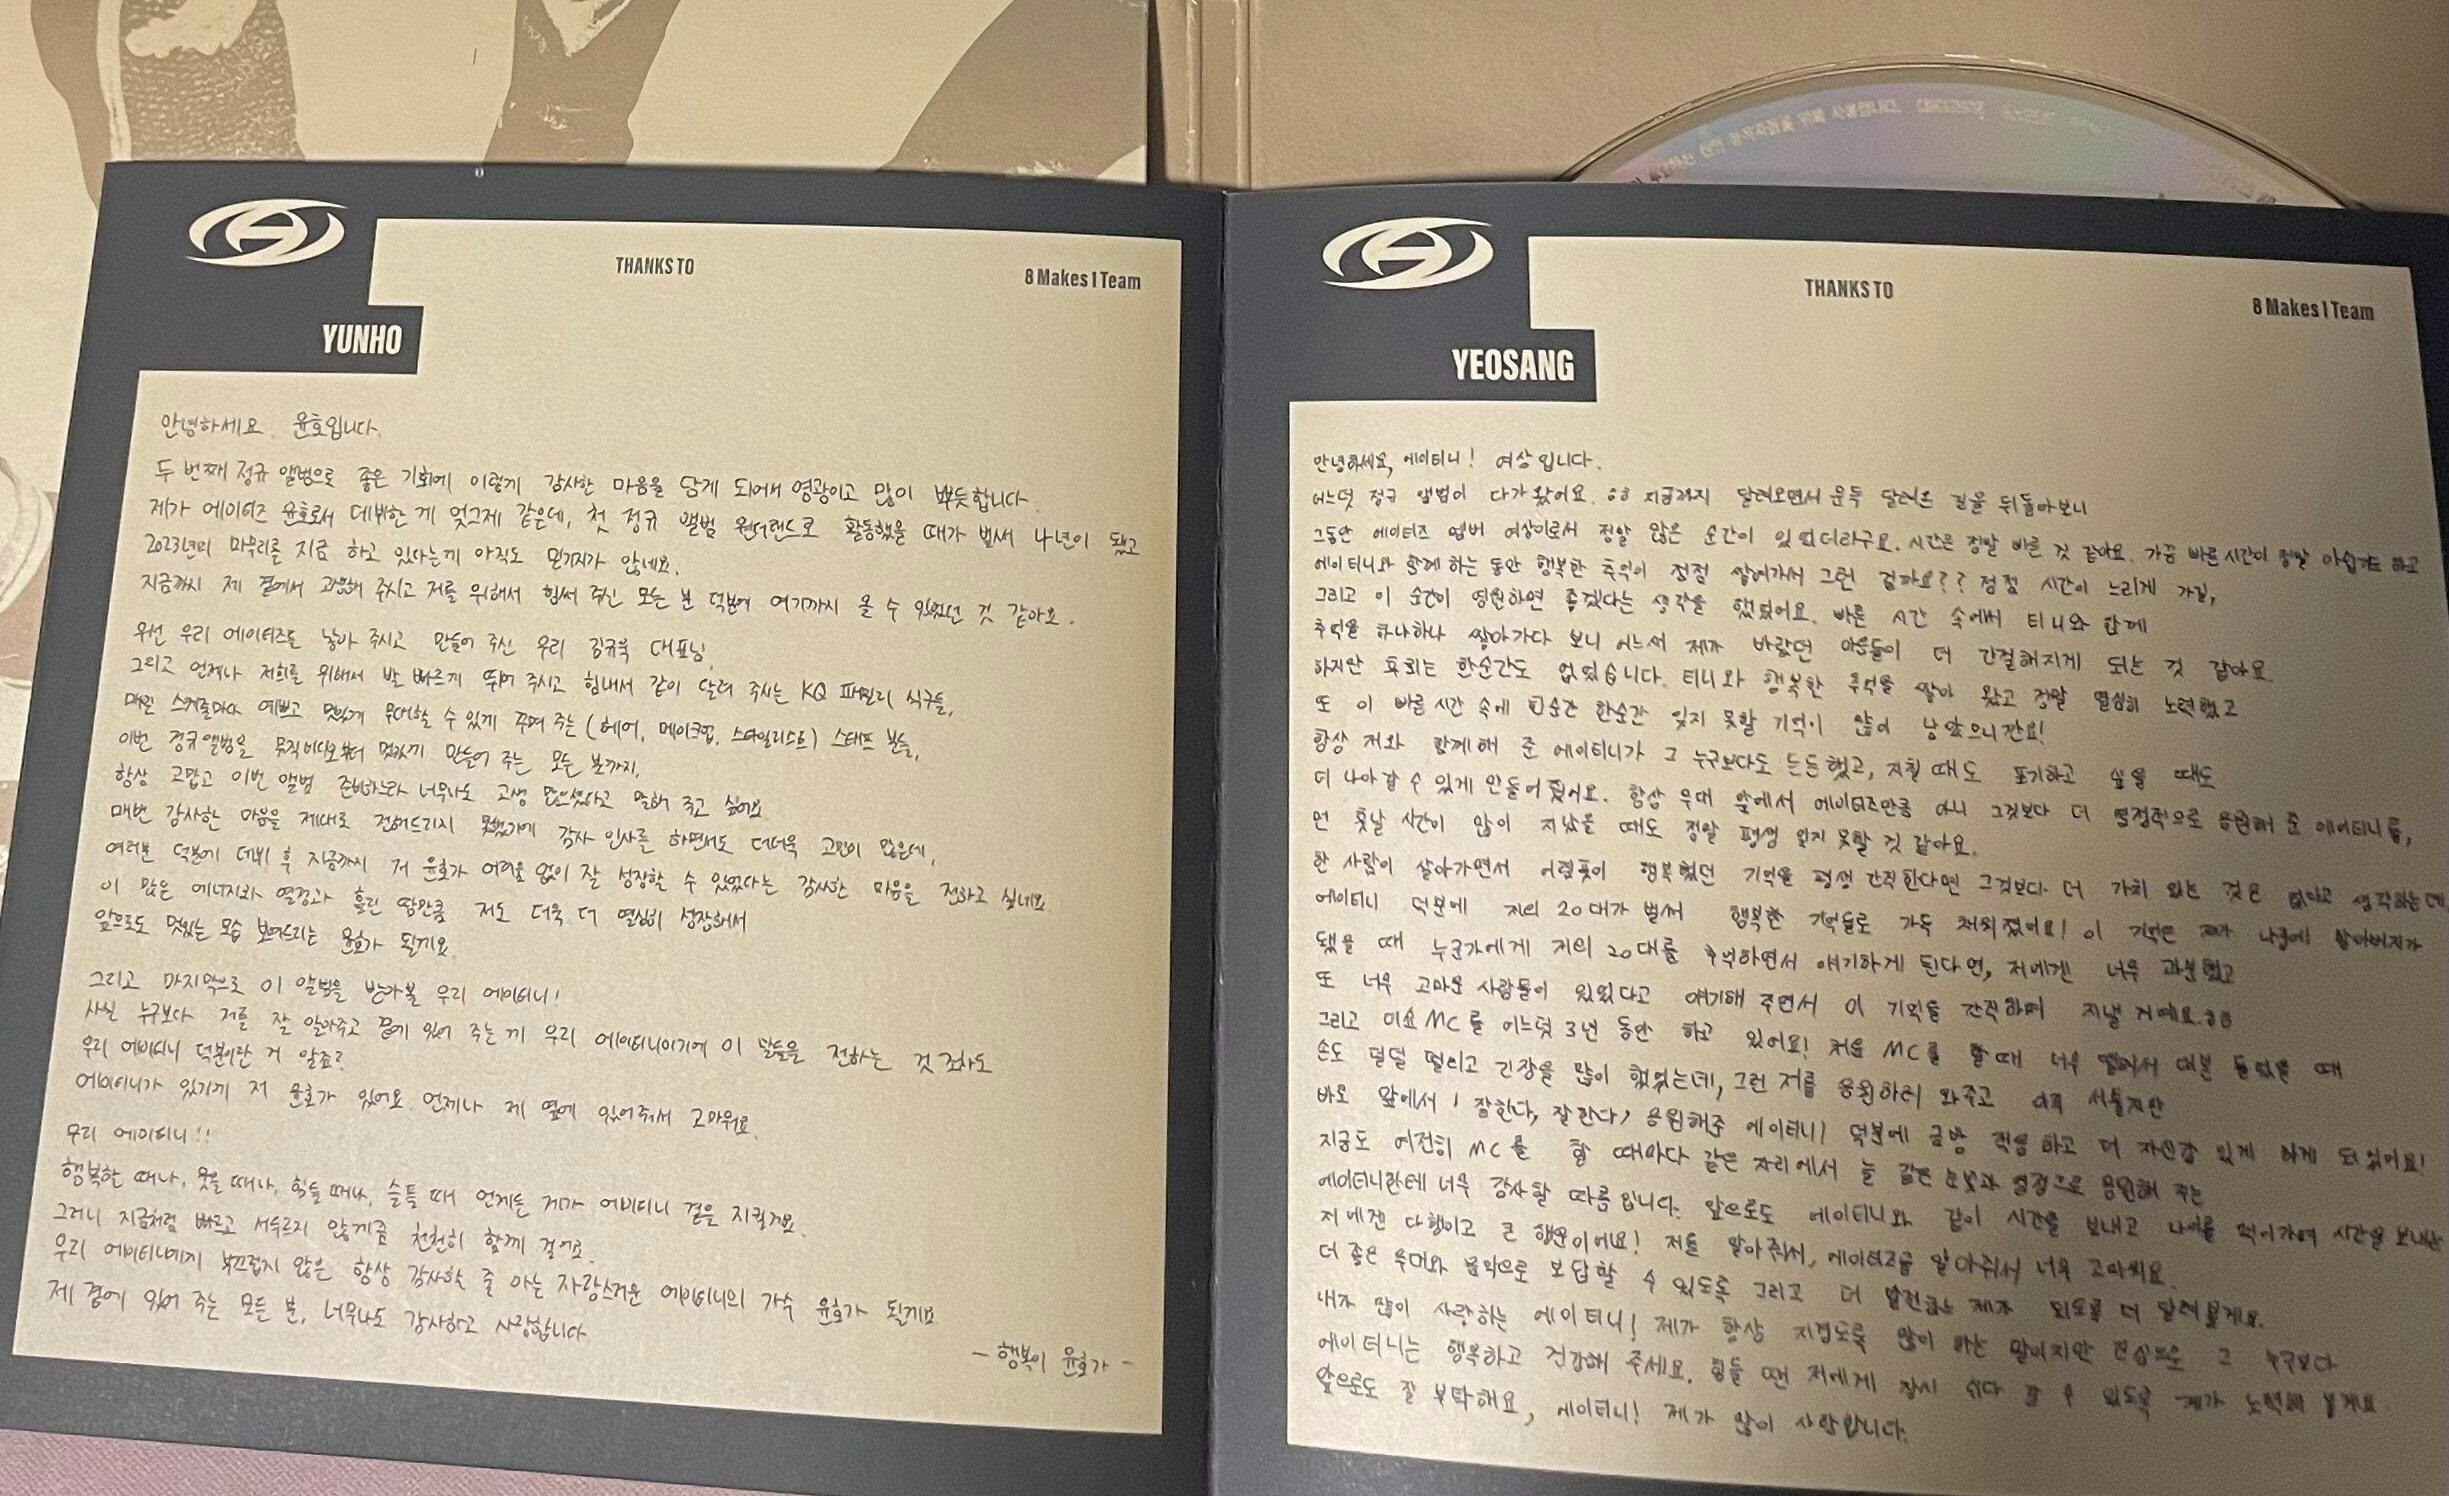 THANKS TO
8 Makes 1 Team
YUNHO
안녕하세요 윤호입니다.
두 번째 정규 앨범으로 좋은 기회에 이렇게 감사한 마음을 담게 되어서 영광이고 많이 뿌듯합니다.
제가 에이티즈 윤호로서 데뷔한 게 엊그제 같은데, 첫 정규 앨범 원더랜드로 활동했을 때가 벌써 4년이 됐고
2023년의 마무리를 지금 하고 있다는게 아직도 믿기지가 않네요.
지금까지 제 곁에서 고생해 주시고 저를 위해서 힘써 주신 모든 분 덕분에 여기까지 올 수 있었던 것 같아요.
우선 우리 에이티즈를 낳아 주시고 만들어 주신 우리 김규욱 대표님,
그리고 언제나 저희를 위해서 발 빠르게 뛰어 주시고 힘내서 같이 달려 주시는 KQ 패밀리 식구들,
매번 스케줄마다 예쁘고 멋있게 무대할 수 있게 꾸며 주는 (헤어, 메이크업, 스타일리스트) 스태프 분들,
이번 정규앨범을 뮤직비디오부터 멋있게 만들어 주는 모든 분까지,
항상 고맙고 이번 앨범 준비하느라 너무나도 고생 많으셨다고 말해 주고 싶어요
매번 감사한 마음을 제대로 전해드리지 못했기에 감사 인사를 하면서도 더더욱 고민이 많은데,
여러분 덕분에 데뷔 후 지금까지 저 윤호가 어려움 없이 잘 성장할 수 있었다는 감사한 마음을 전하고 싶네요
이 많은 에너지와 열정과 흘린 땀만큼 저도 더욱 더 열심히 성장해서
앞으로도 멋있는 모습 보여드리는 윤호가 될게요.
그리고 마지막으로 이 앨범을 받아볼 우리 에이티니!
사실 누구보다 저를 잘 알아주고 곁에 있어 주는 게 우리 에이티니이기에 이 말들을 전하는 것 조차도
우리 에이티니 덕분이란 거 알죠?
에이티니가 있기에 저 윤호가 있어요. 언제나 제 옆에 있어줘서 고마워요.
우리 에이티니!!
행복할 때나, 웃을 때나, 힘들 때나, 슬플 때 언제든 제가 에이티니 곁을 지킬게요.
그러니 지금처럼 빠르고 서두르지 않게끔 천천히 함께 걸어요.
우리 에이티니에게 부끄럽지 않은 항상 감사할 줄 아는 자랑스러운 에이티니의 가수 윤호가 될게요
제 곁에 있어 주는 모든 분, 너무나도 감사하고 사랑합니다
- 행복이 윤호가 -
THANKS TO
8 Makes 1 Team
YEOSANG
안녕하세요, 에이티니! 여상입니다.
어느덧 정규 앨범이 다가왔어요. ㅎㅎ 지금까지 달려오면서 문득 달려온 길을 뒤돌아보니
그동안 에이티즈 멤버 여상이로서 정말 많은 순간이 있었더라구요. 시간은 정말 빠른 것 같아요. 가끔 빠른 시간이 정말 아쉽기도 하고
에이티니와 함께 하는 동안 행복한 추억이 점점 쌓여가서 그런 걸까요?? 점점 시간이 느리게 가길,
그리고 이 순간이 영원하면 좋겠다는 생각을 했었어요. 빠른 시간 속에서 티니와 함께
추억을 하나하나 쌓아가다 보니 어느새 제가 바랐던 마음들이 더 간절해지게 되는 것 같아요.
하지만 후회는 한순간도 없었습니다. 티니와 행복한 추억을 쌓아 왔고 정말 열심히 노력했고
또 이 빠른 시간 속에 한순간 한순간 잊지 못할 기억이 많이 남았으니깐요!
항상 저와 함께해 준 에이티니가 그 누구보다도 든든했고, 지칠 때도 포기하고 싶을 때도
더 나아갈 수 있게 만들어 줬어요. 항상 무대 앞에서 에이티즈만큼 아니 그것보다 더 열정적으로 응원해 준 에이티니를,
먼 훗날 시간이 많이 지났을 때도 정말 평생 잊지 못할 것 같아요.
한 사람이 살아가면서 어렴풋이 행복했던 기억을 평생 간직한다면 그것보다 더 가치 있는 것은 없다고 생각하는데,
에이티니 덕분에 저의 20대가 벌써 행복한 기억들로 가득 채워졌어요! 이 기억은 제가 나중에 할아버지가
됐을 때 누군가에게 저의 20대를 추억하면서 얘기하게 된다면, 저에겐 너무 과분했고
또 너무 고마운 사람들이 있었다고 얘기해 주면서 이 기억을 간직하며 지낼 거예요.ㅎㅎ
그리고 더쇼 MC를 어느덧 3년 동안 하고 있어요! 처음 MC를 할 때 너무 떨려서 대본 들었을 때
손도 덜덜 떨리고 긴장을 많이 했었는데, 그런 저를 응원하러 와주고 아직 서툴지만
바로 앞에서 '잘한다, 잘한다' 응원해준 에이티니! 덕분에 금방 적응하고 더 자신감 있게 하게 되었어요!
지금도 여전히 MC를 할 때마다 같은 자리에서 늘 같은 눈빛과 열정으로 응원해 주는
에이티니한테 너무 감사할 따름입니다. 앞으로도 에이티니와 같이 시간을 보내고 나이를 먹어가며 시간을 보내는
저에겐 다행이고 큰 행운이에요! 저를 알아줘서, 에이티즈를 알아줘서 너무 고마워요.
더 좋은 무대와 음악으로 보답할 수 있도록 그리고 더 발전하는 제가 되도록 더 달려볼게요.
내가 많이 사랑하는 에이티니! 제가 항상 지겹도록 많이 하는 말이지만 진심으로 그 누구보다
에이티니는 행복하고 건강해 주세요. 힘들 땐 저에게 잠시 쉬다 갈 수 있도록 제가 노력해 볼게요.
앞으로도 잘 부탁해요, 에이티니! 제가 많이 사랑합니다.